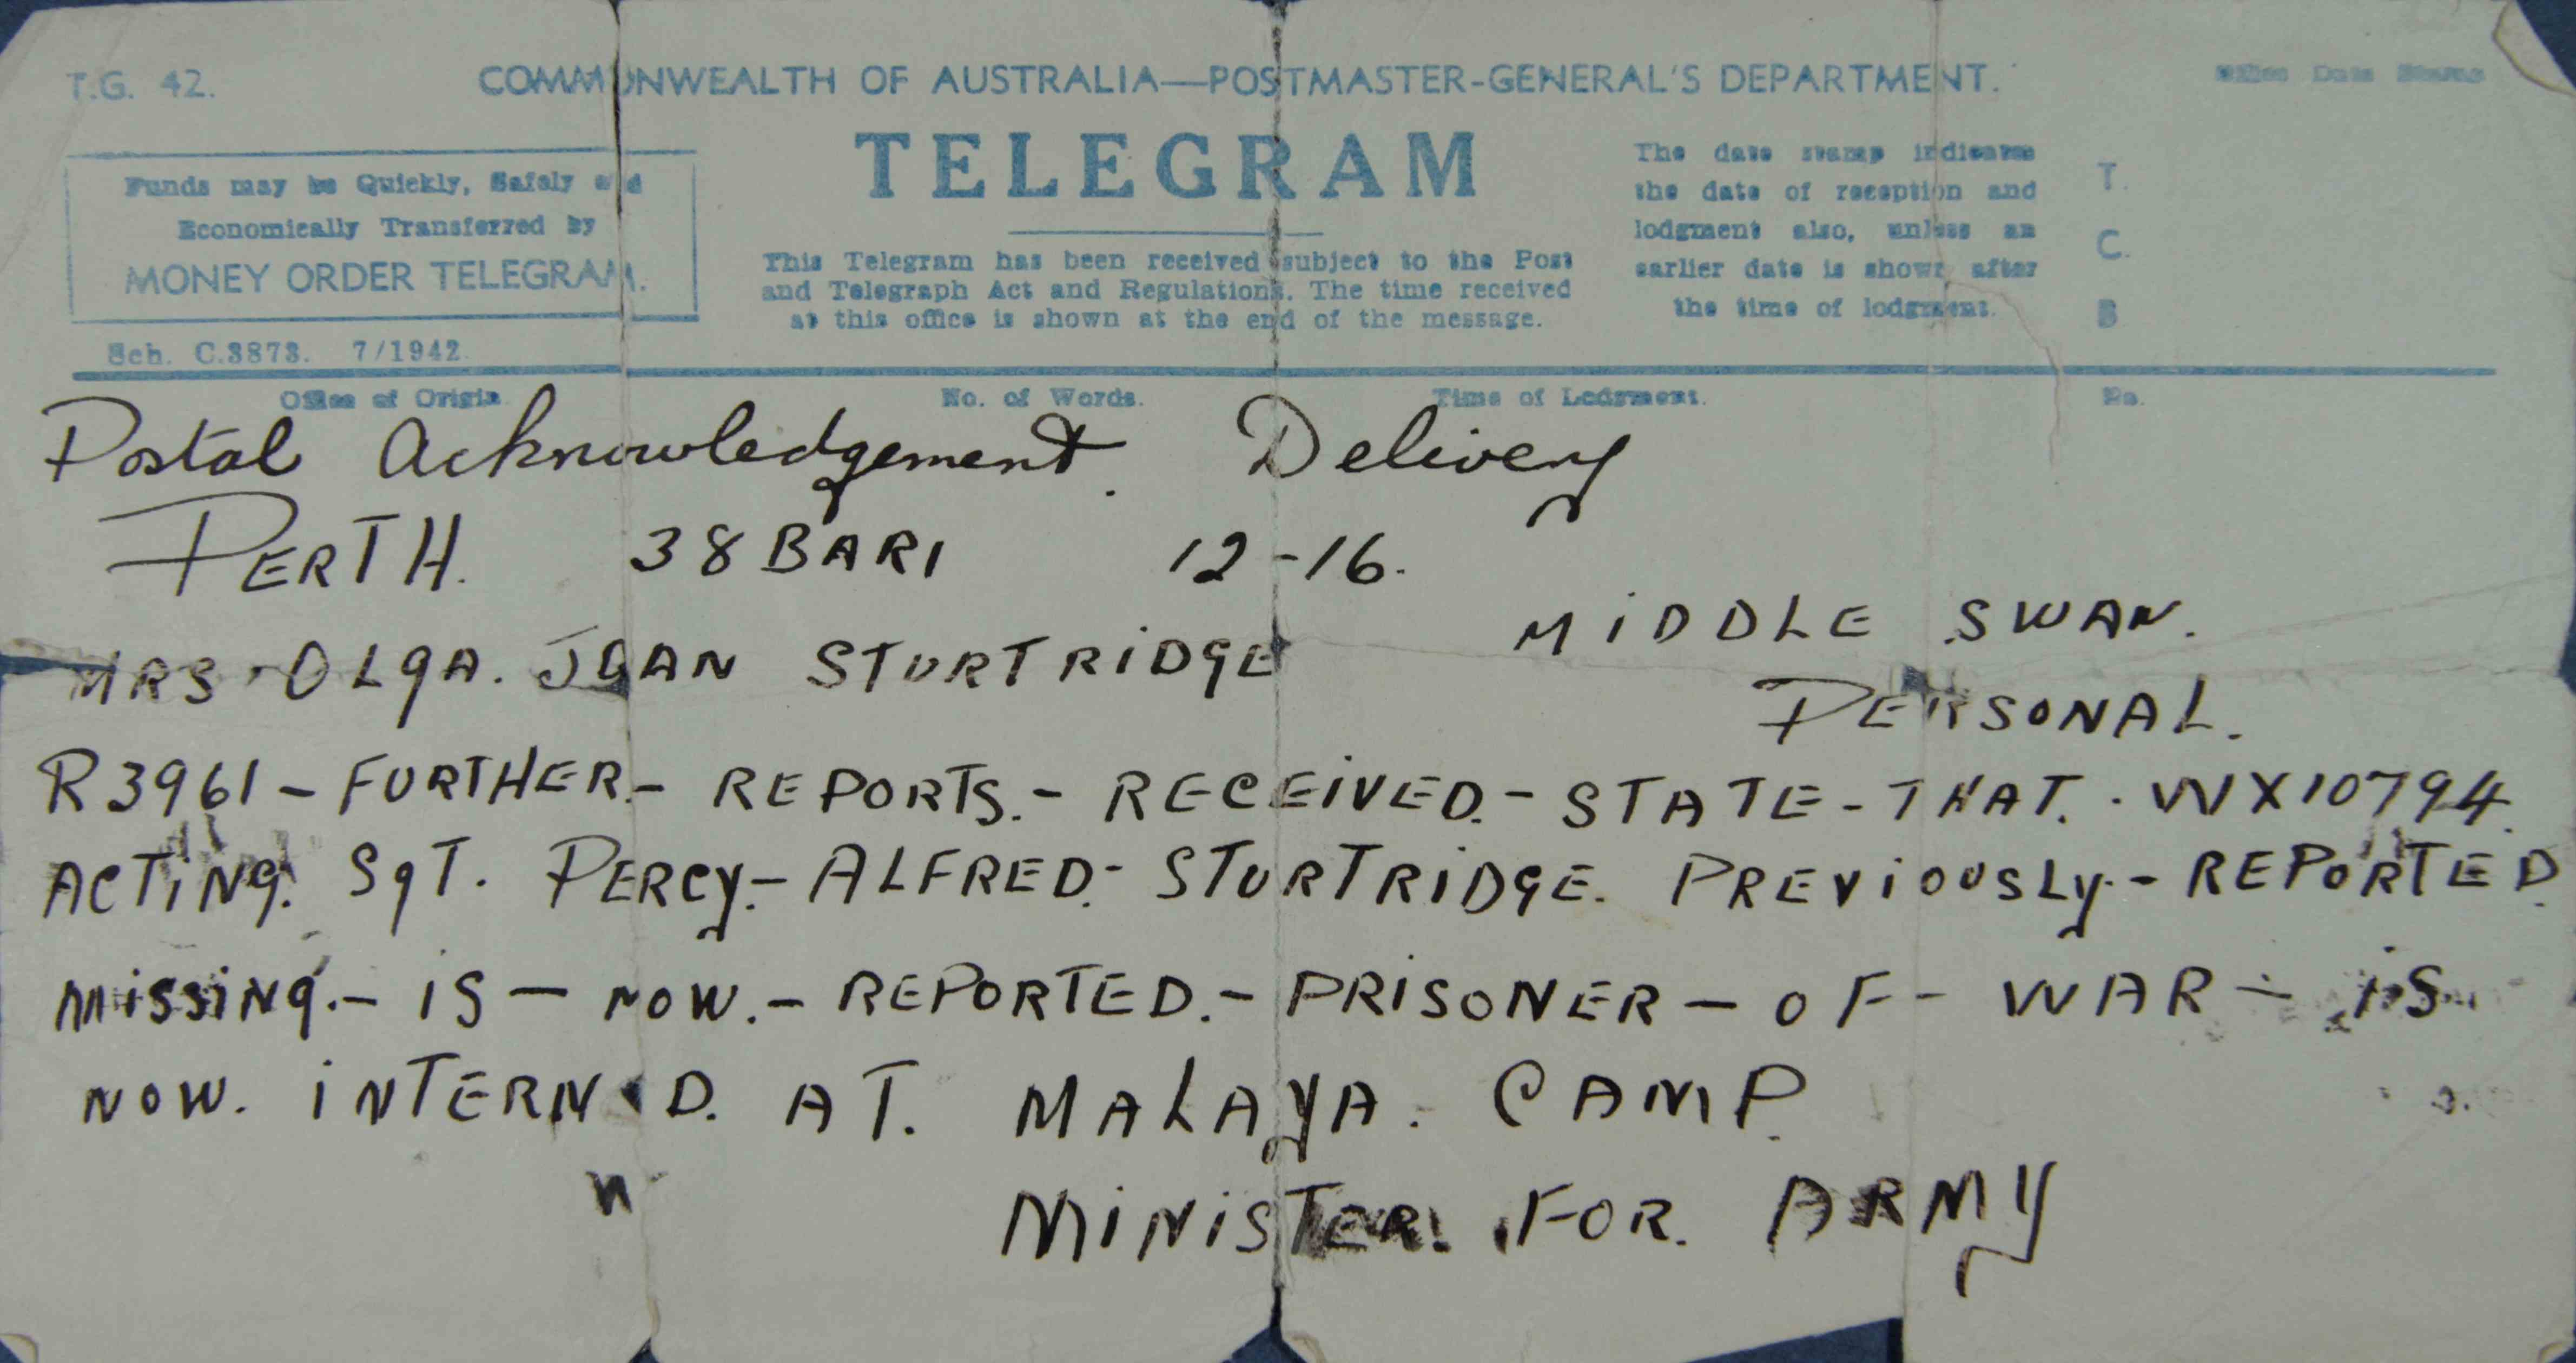 T.G. 42.
COMMONWEALTH OF AUSTRALIA—POSTMASTER-GENERAL'S DEPARTMENT.
Office Date Stamp
TELEGRAM
Funds may be Quickly, Safely and
Economically Transferred by
MONEY ORDER TELEGRAM.
Sch. C.3873. 7/1942.
This Telegram has been received subject to the Post
and Telegraph Act and Regulations. The time received
at this office is shown at the end of the message.
The date stamp indicates
the date of reception and
lodgment also, unless an
earlier date is shown after
the time of lodgment.
T.
C.
B
Office of Origin.
No. of Words.
Time of Lodgment.
No.
Postal Acknowledgement. Delivery
PERTH. 38 BARI 12-16.
MIDDLE SWAN.
MRS. OLGA. JOAN STURTRIDGE
PERSONAL.
R3961 - FURTHER. - REPORTS. - RECEIVED. - STATE - THAT. - WX10794.
ACTING. SGT. PERCY. - ALFRED. - STURTRIDGE. PREVIOUSLY. - REPORTED.
MISSING. - IS - NOW. - REPORTED. - PRISONER - OF - WAR - IS
NOW. INTERN D. AT. MALAYA. CAMP.
MINISTER. FOR. ARMY